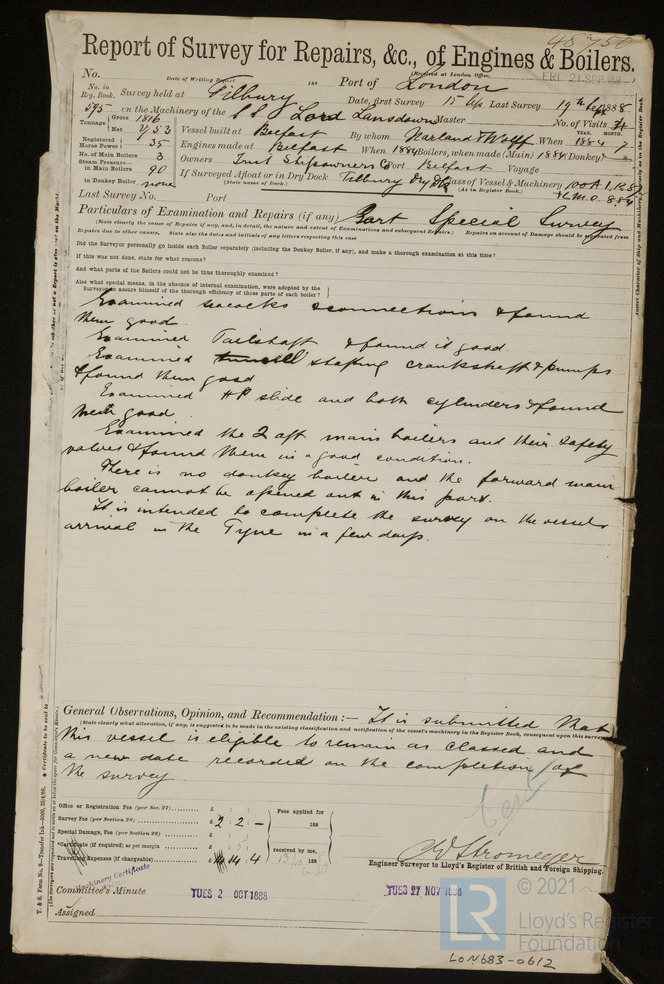 48750
Report of Survey for Repairs, &c., of Engines & Boilers.
(Received at London Office,
FRI. 21 SEP 88
No.
Date of Writing Report
188
Port of London
No. in Reg. Book.
595
Survey held at Tilbury
Date, first Survey 15th Last Survey 19th Sept 1888
on the Machinery of the SS Lord Lansdown
Master
No. of Visits
Tonnage Gross 1816
Net
Vessel built at Belfast
By whom Harland & Wolff
When 1884 7
YEAR. MONTH.
Registered Horse Power 35
Engines made at Belfast
When 1884
Boilers, when made (Main) 1884
(Donkey)
No. of Main Boilers 3
Owners Irish Shipowners Co
Port Belfast
Voyage
Steam Pressure—
in Main Boilers 90
If Surveyed Afloat or in Dry Dock Tilbury Dry Dk
(State name of Dock.)
Class of Vessel & Machinery 100A1
(As in Register Book.)
in Donkey Boiler none
+LMC 8.84
Last Survey No.
Port
Particulars of Examination and Repairs (if any) Part Special Survey
(State clearly the cause of Repairs if any, and, in detail, the nature and extent of Examinations and subsequent Repairs.) Repairs on account of Damage should be separated from
Repairs due to other causes. State also the dates and initials of any letters respecting this case
Did the Surveyor personally go inside each Boiler separately (including the Donkey Boiler, if any), and make a thorough examination at this time?
If this was not done, state for what reasons?
And what parts of the Boilers could not be thus thoroughly examined?
Also what special means, in the absence of internal examination, were adopted by the
Surveyor to assure himself of the thorough efficiency of those parts of each boiler?
Examined seacocks & connections & found
them good.
Examined Tailshaft & found it good.
Examined tunnell shafting crankshaft & pumps
& found them good
Examined HP slide and both cylinders & found
them good
Examined the 2 aft main boilers and their safety
valves & found them in a good condition.
There is no donkey boiler and the forward main
boiler cannot be opened out in this port.
It is intended to complete the survey on the vessels
arrival in the Tyne in a few days.
General Observations, Opinion, and Recommendation :— It is submitted that
(State clearly what alteration, if any, is suggested to be made in the existing classification and notification of the vessel's machinery in the Register Book, consequent upon this survey
this vessel is eligible to remain as classed and
a new date recorded on the completion of
the survey
Office or Registration Fee (per Sec. 27)
Survey Fee (per Section 28) £ 2 : 2 : –
Special Damage, Fee (per Section 28)
*Certificate (if required) as per margin
Travelling Expenses (if chargeable) £ 14 : 4
Fees applied for
188
received by me,
188
Cert
C W Stromeyer
Engineer Surveyor to Lloyd's Register of British and Foreign Shipping.
Machinery Certificate
Committee's Minute
TUES 2 OCT 1888
TUES 27 NOV 1888
Assigned
LR
© 2021
Lloyd's Register
Foundation
LON683-0612